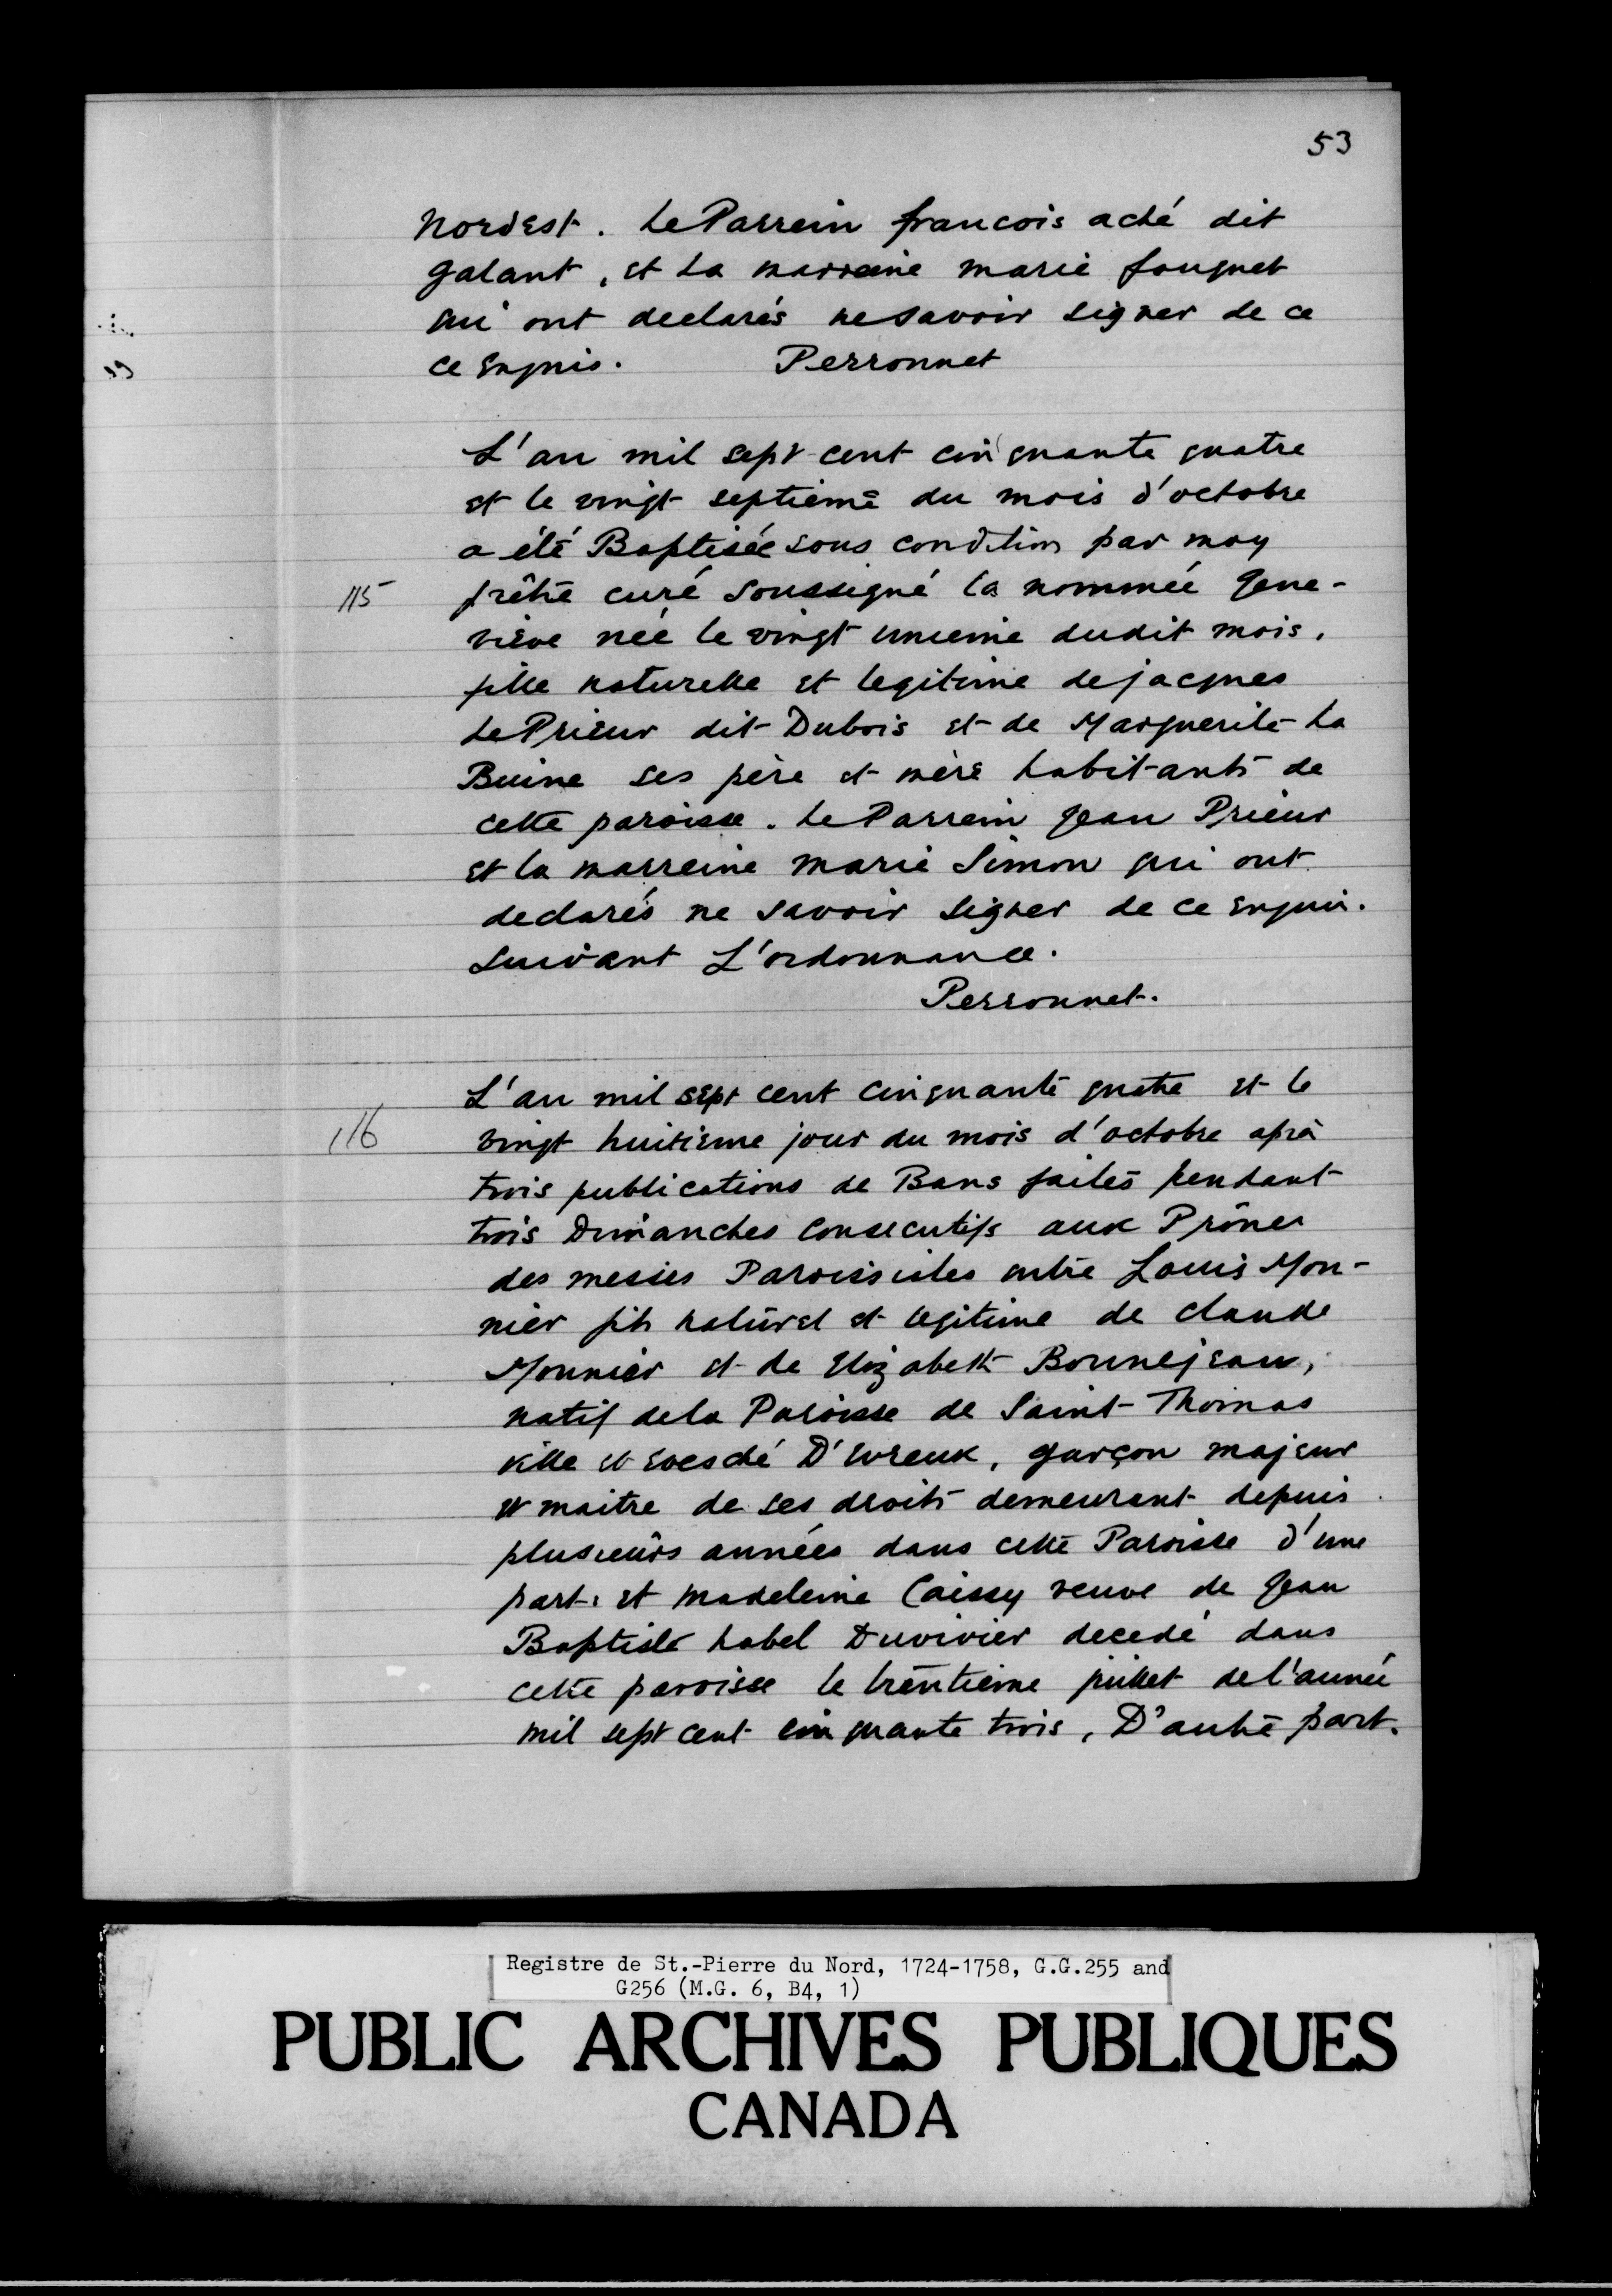 53
nordest. Le Parrein francois aché dit
galant, et La marreine marie fouquet
qui ont declarés ne savoir signer de ce
ce enquis. Perronnet
L'an mil sept cent cinquante quatre
et le vingt septieme du mois d'octobre
a été Baptisée sous condition par moy
115 prêtre curé soussigné la nommée gene-
viève née le vingt unieme dudit mois,
fille naturelle et legitime de jacques
Le Prieur dit Dubois et de Marguerite La
Buine ses père et mère habitants de
cette paroisse. Le Parrein Jean Prieur
et la marreine marie Simon qui ont
declarés ne savoir signer de ce enquis.
suivant L'ordonnance.
Perronnet.
L'an mil sept cent cinquante quatre et le
116 vingt huitieme jour du mois d'octobre après
trois publications de Bans faites pendant
trois Dimanches consecutifs aux Prônes
des messes Paroissiales entre Louis Mon-
nier fils naturel et legitime de claude
Monnier et de Elizabeth Bonnejean,
natif de la Paroisse de Saint Thomas
ville et evesché D'evreux, garçon majeur
et maitre de ses droits demeurant depuis
plusieurs années dans cette Paroisse d'une
part. et madeleine Caissy veuve de Jean
Baptiste habel Duvivier decedé dans
cette paroisse le trentieme juillet de l'année
mil sept cent cinquante trois, D'autre part.
Registre de St.-Pierre du Nord, 1724-1758, G.G.255 and
G256 (M.G. 6, B4, 1)
PUBLIC ARCHIVES PUBLIQUES
CANADA